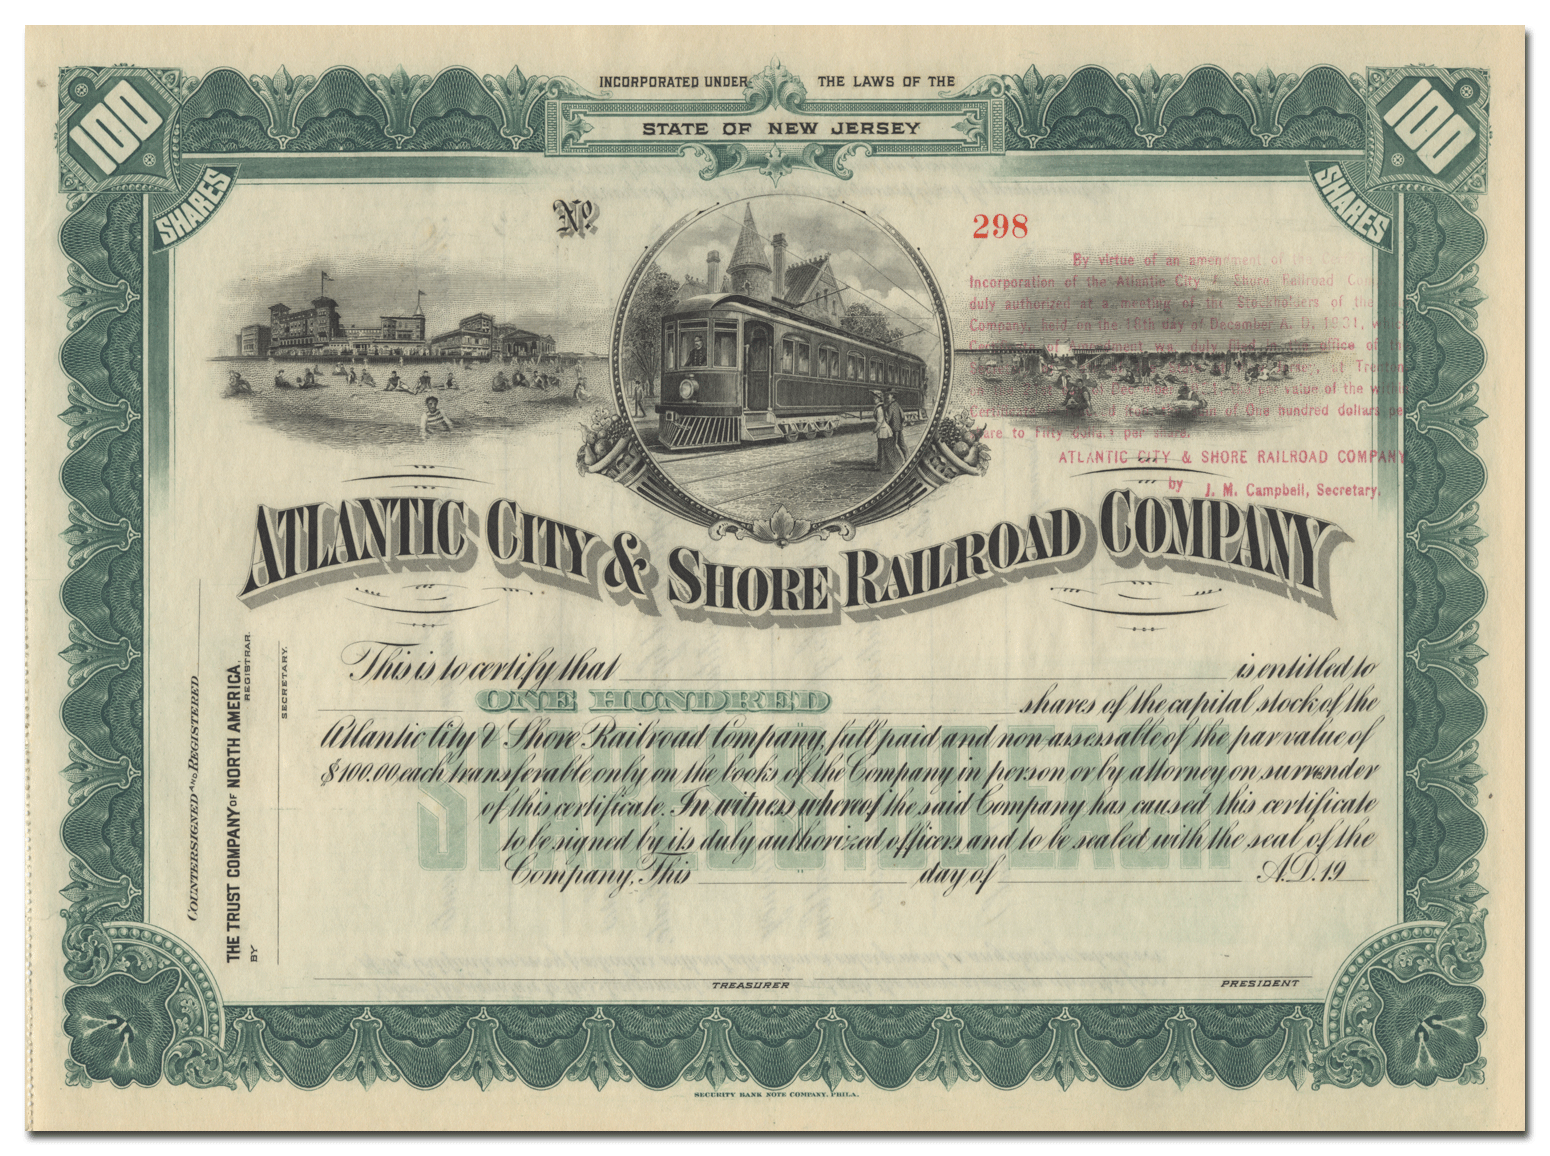 INCORPORATED UNDER THE LAWS OF THE
STATE OF NEW JERSEY
100
SHARES
100
SHARES
No
298
By virtue of an amendment of the
Incorporation of the Atlantic City & Shore Railroad
duly authorized at a meeting of the Stockholders of the
Company, held on the 18th day of December A. D. 1931,
Certificate of Amendment was duly filed in the office of
at
par value of the
Certificate of One hundred dollars
to Fifty dollars per share.
ATLANTIC CITY & SHORE RAILROAD COMPANY
by J. M. Campbell, Secretary.
ATLANTIC CITY & SHORE RAILROAD COMPANY
This is to certify that is entitled to
ONE HUNDRED shares of the capital stock of the
Atlantic City & Shore Railroad Company, full paid and non-assessable of the par value of
$100.00 each transferable only on the books of the Company in person or by attorney on surrender
of this certificate. In witness whereof the said Company has caused this certificate
to be signed by its duly authorized officers and to be sealed with the seal of the
Company, This day of A.D. 19
SHARES $100 EACH
TREASURER
PRESIDENT
COUNTERSIGNED AND REGISTERED
THE TRUST COMPANY OF NORTH AMERICA.
REGISTRAR.
BY
SECRETARY.
SECURITY BANK NOTE COMPANY, PHILA.